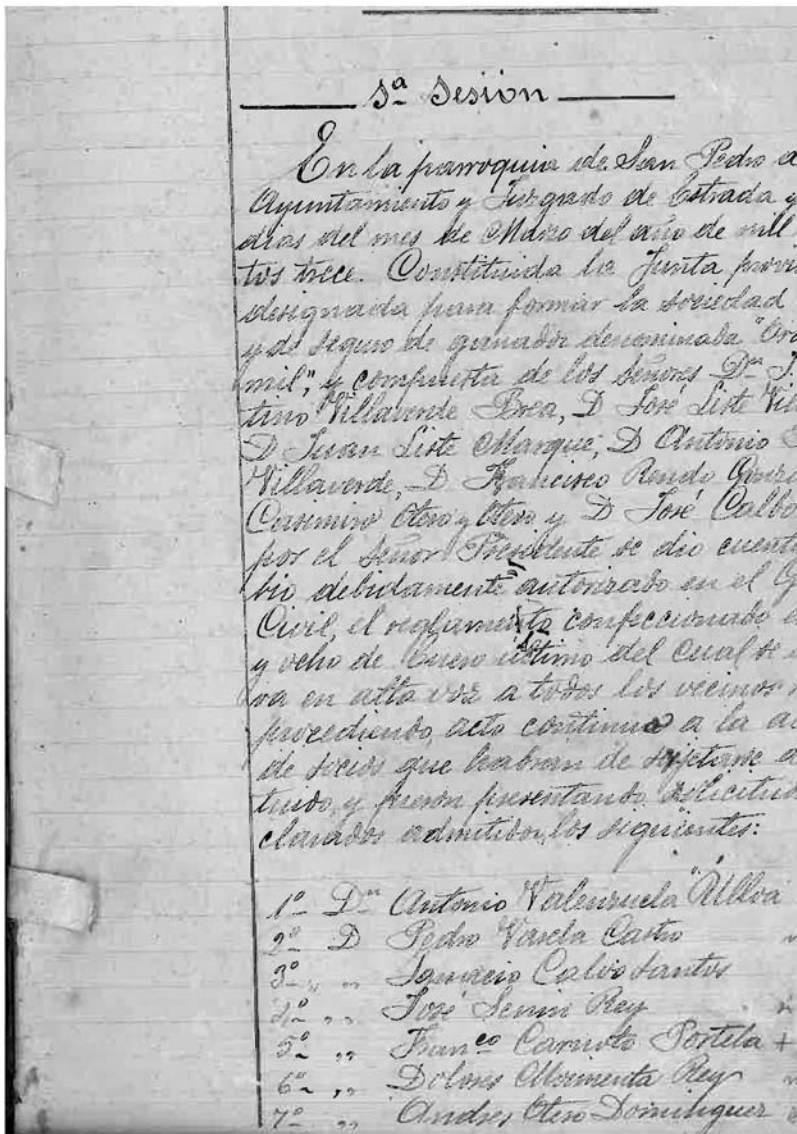 3ª Sesion
En la parroquia de San Pedro
Ayuntamiento y Juzgado de Estrada y
dias del mes de Marzo del año de mil
tos trece. Constituida la Junta provi
designada para formar la sociedad
y de seguro de ganados denominada
mil", y compuesta de los Señores Dⁿ
tino Villaverde Brea, D José Liste Vil
D Juan Liste Marque, D Antonio
Villaverde, D. Francisco Rendo Gonz
Casimiro Otero y Otero y D José Calbo
por el Señor Presidente se dio cuent
bio debidamente autorizado en el
Civil, el reglamento confeccionado e
y ocho de Enero último del cual se
ra en alta voz a todos los vecinos
procediendo, acto continuo a la a
de socios que habran de sujetarse a
tuido, y fueron presentando solicitud
clarados admitidos, los siguientes:
1º Dⁿ Antonio Valenzuela Ulloa
2º D Pedro Varela Castro "
3º " " Ignacio Calvo Santos
4º " " José Rey "
5º " " Franᶜᵒ Portela +
6º " " Dolores Rey "
7º " " Andres Otero Dominguez